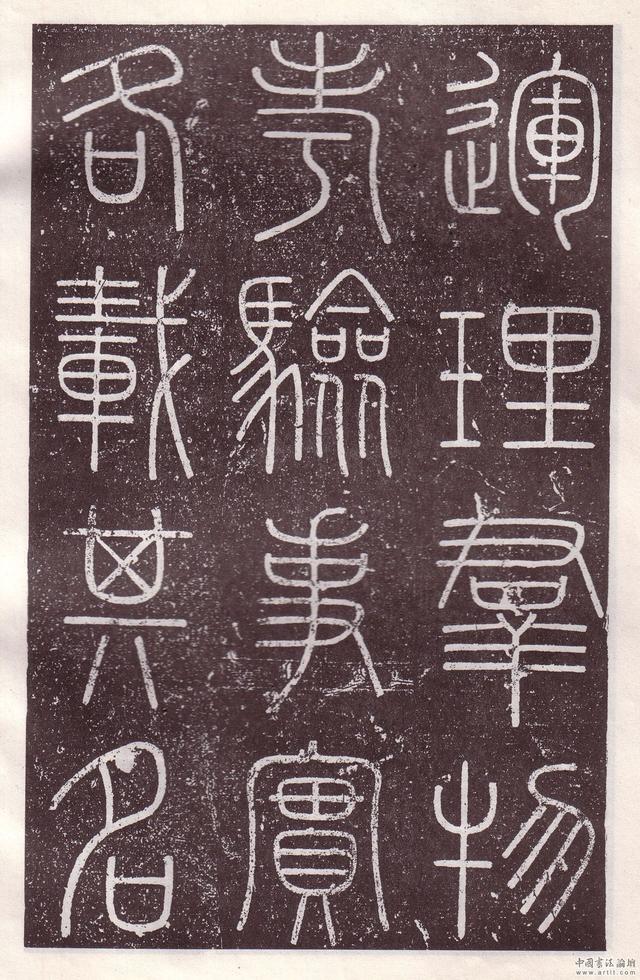 運理羣物
考驗事實
各載其名
中國書法論壇
www.artit.com